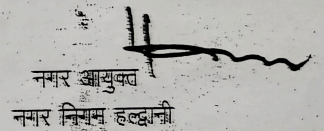 नगर आयुक्त
नगर निगम हल्द्वानी